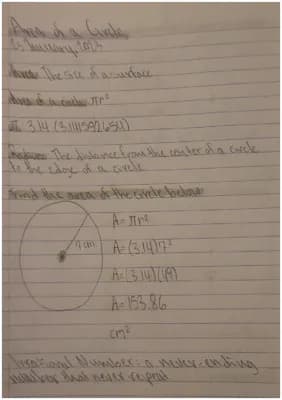 Area of a Circle
25 January, 2023
Area: The size of a surface
Area of a circle: πr²
π 3.14 (3.14159265)
Radius: The distance from the center of a circle
to the edge of a circle
Find the area of the circle below:
7 cm
A= πr²
A= (3.14)7²
A= (3.14)(49)
A= 153.86
cm²
Irrational Number: a never-ending
number that never repeat